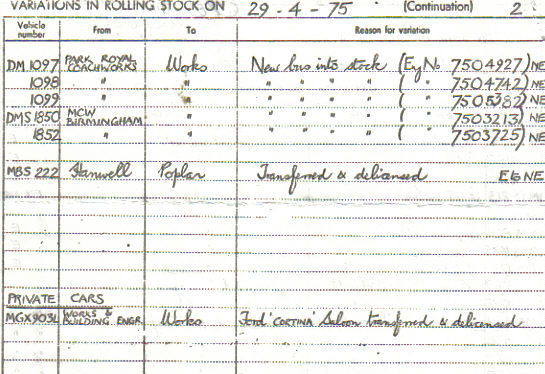 VARIATIONS IN ROLLING STOCK ON 29-4-75 (Continuation) 2
Vehicle number From To Reason for variation
DM 1097 PARK ROYAL COACHWORKS Works New bus into stock (Eng No 7504927) NE
1098 " " " " " " ( " 7504742) NE
1099 " " " " " " ( " 7505382) NE
DMS 1850 MCW BIRMINGHAM " " " " " ( " 7503213) NE
1852 " " " " " " ( " 7503725) NE
MBS 222 Hanwell Poplar Transferred & delicensed E6 NE
PRIVATE CARS
MGX903L WORKS & BUILDING ENGR. Works Ford 'CORTINA' Saloon transferred & delicensed